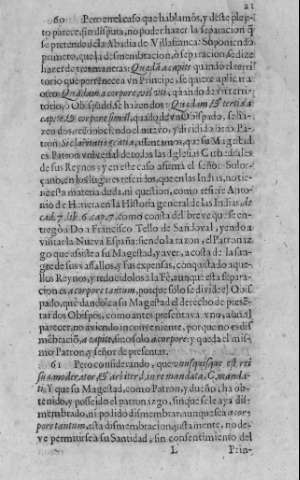 21
60 Pero en el caso que hablamos, y deste pleyto
parece, sin disputa, no puder hazer la separacion q̃
se pretende de la Abadia de Villafranca: Suponiendo
primero, que la desmembracion, ò separacion se dize
hazer de maneras: Quædã à capite quando el territorio
que pertenece a vn Principe, se quiere aplicar a
otro: Quædam à corpore,
torio, ò Obispado, se hazen dos: Quædam & tertia à
capite & corpore simul, quãdo de vn Obispado, se hazen
dos, y dividido otro Patron:
Sic las utatis gratia, que su Magestad
es Patron vniversal de todas las Iglesias Cathedrales
de sus Reynos, y en este caso afirma el señor Solorçano,
en los lugares referidos, que en las Indias, no tiene
esta materia duda, ni question, como refiere Antonio
de Herrera en la Historia general de las Indias, decad.
7. lib. 6. cap. 7. como consta del breve que se entregò
a Don Francisco Tello de Sandoval, yendo a
visitar la Nueva España: siendo la razon, el Patronazgo
que assiste a su Magestad, y aver, a costa de la sangre
de sus vassallos, y sus expensas, conquistado aquellos
Reynos, y reducidolos a la Fè, aunque esta separacion
es à corpore tantum, porque sólo se divide el Obispado,
quedandole a su Magestad el derecho de presentar
dos Obispos, como antes presentava vno, a lo q̃ al
parecer, no aviendo inconveniente, porque no es dismẽbraciõ,
à capite, sino solo à corpore: y queda el mismo
Patron, y señor de presentar.
61 Pero considerando, que vnusquisque est rei
suæ moderator, & arbiter, in re mandata, C. mandati.
Y que su Magestad, como Patron, y dueño, ha obtenido,
y posseido el patronazgo, sin que se le aya dismembrado,
ni podido dismembrar, aunque sea à corpore
tantum, esta dismembracion, justamente, no deve
permitirse a su Santidad, sin consentimiento del
L Prin-